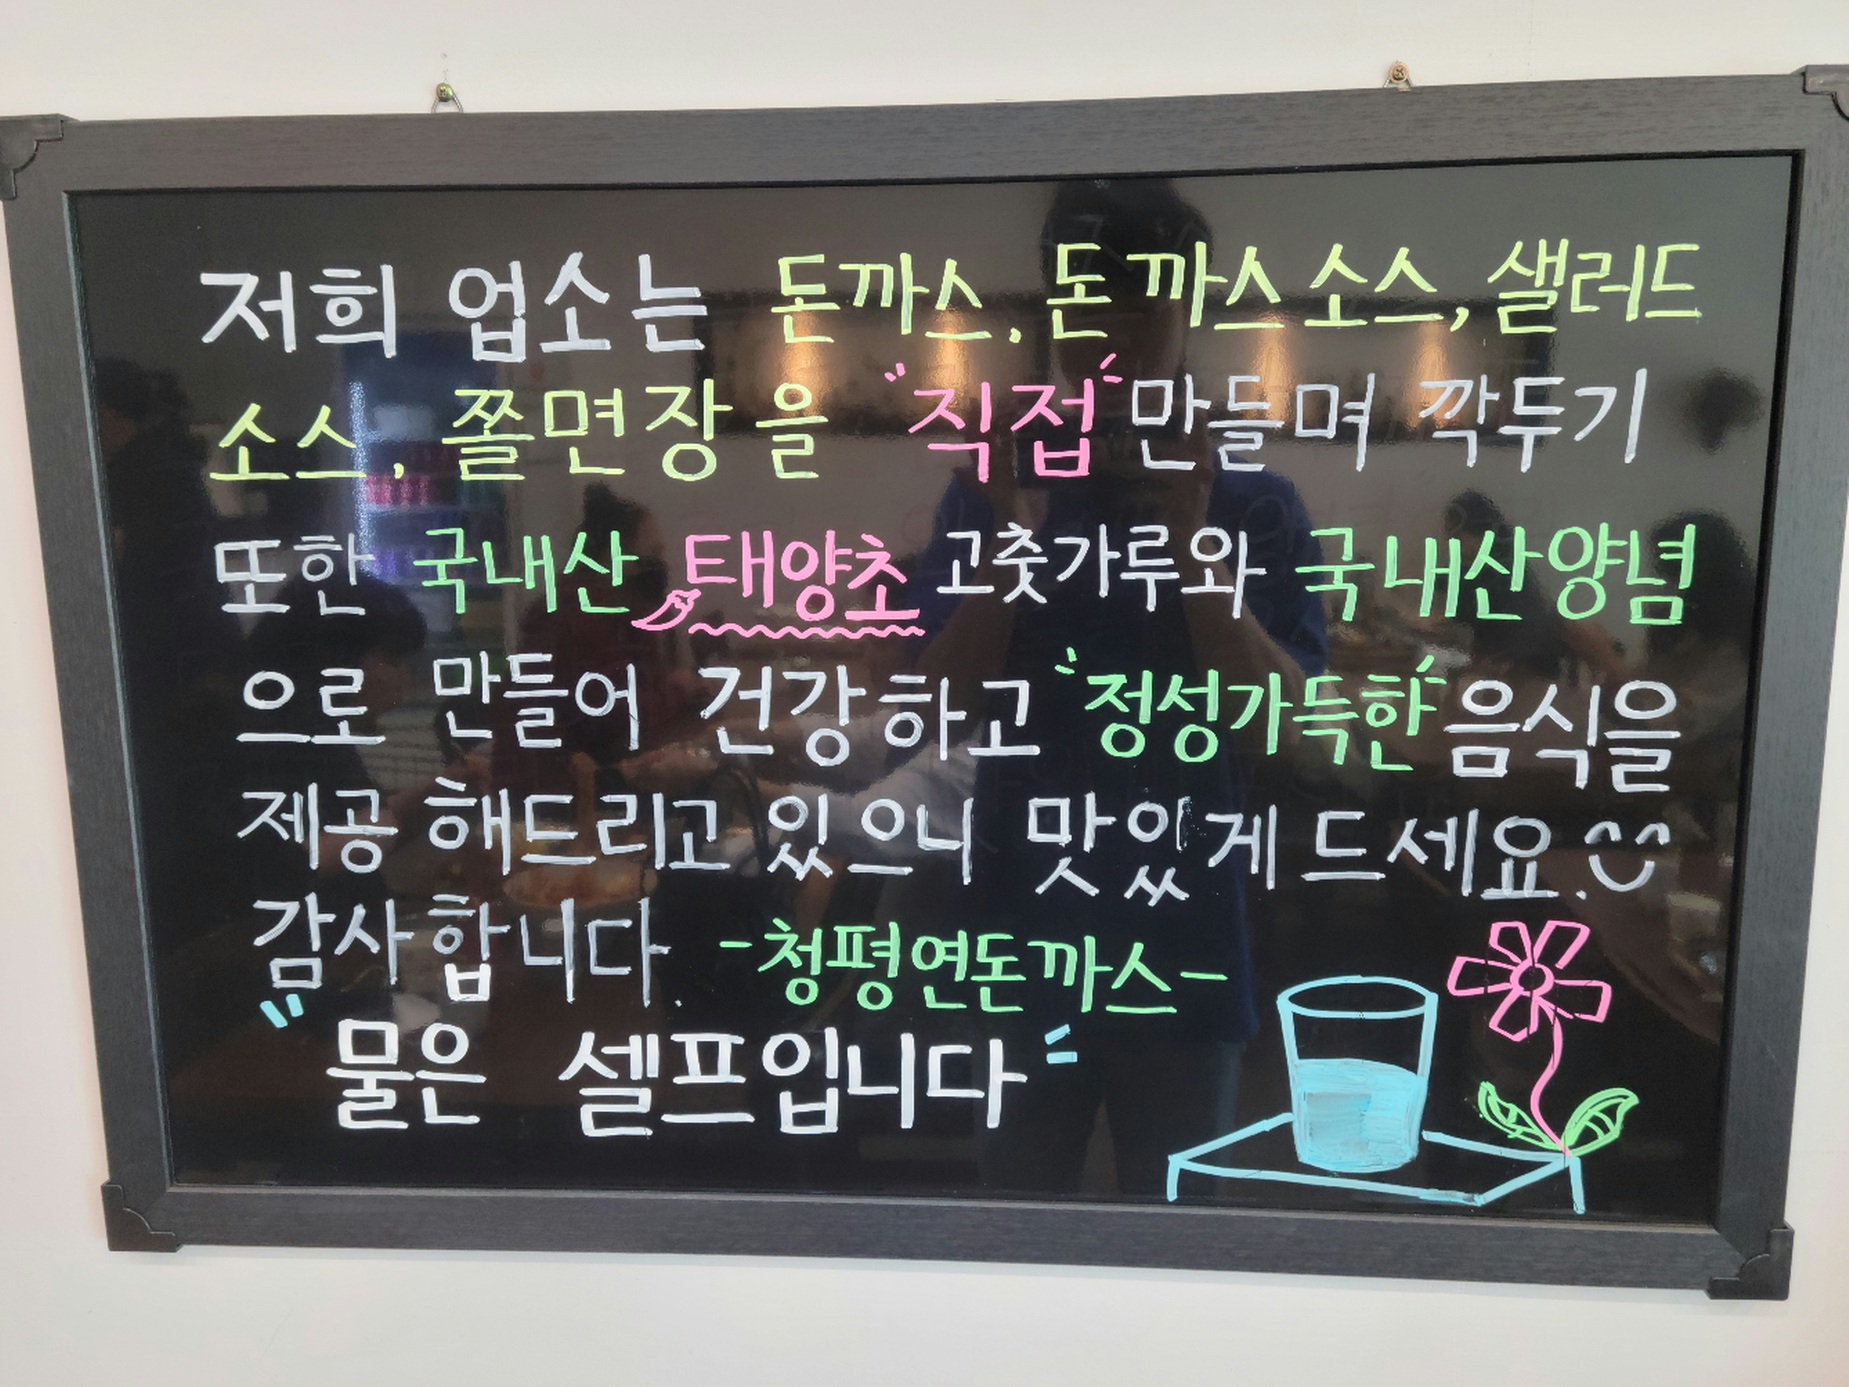 저희 업소는 돈까스, 돈까스소스, 샐러드
소스, 쫄면장을 "직접" 만들며 깍두기
또한 국내산 태양초 고춧가루와 국내산양념
으로 만들어 건강하고 "정성가득한" 음식을
제공 해드리고 있으니 맛있게 드세요.
감사합니다. -청평연돈까스-
"물은 셀프입니다"